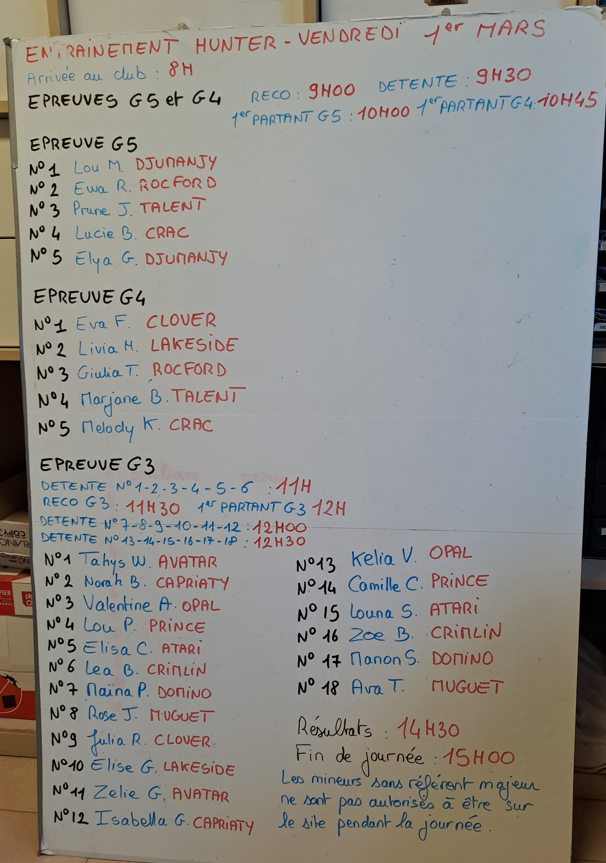 ENTRAINEMENT HUNTER - VENDREDI 1er MARS
Arrivée au club : 8H
EPREUVES G5 et G4 RECO : 9H00 DETENTE : 9H30
1er PARTANT G5 : 10H00 1er PARTANT G4 : 10H45
EPREUVE G5
N°1 Lou M. DJUMANJY
N°2 Ewa R. ROCFORD
N°3 Prune J. TALENT
N°4 Lucie B. CRAC
N°5 Elya G. DJUMANJY
EPREUVE G4
N°1 Eva F. CLOVER
N°2 Livia M. LAKESIDE
N°3 Giulia T. ROCFORD
N°4 Marjane B. TALENT
N°5 Melody K. CRAC
EPREUVE G3
DETENTE N°1-2-3-4-5-6 : 11H
RECO G3 : 11H30 1er PARTANT G3 12H
DETENTE N°7-8-9-10-11-12 : 12H00
DETENTE N°13-14-15-16-17-18 : 12H30
N°1 Tahys W. AVATAR
N°2 Norah B. CAPRIATY
N°3 Valentine A. OPAL
N°4 Lou P. PRINCE
N°5 Elisa C. ATARI
N°6 Lea B. CRIMLIN
N°7 Maïna P. DOMINO
N°8 Rose J. MUGUET
N°9 Julia R. CLOVER.
N°10 Elise G. LAKESIDE
N°11 Zelie G. AVATAR
N°12 Isabella G. CAPRIATY
N°13 Kelia V. OPAL
N°14 Camille C. PRINCE
N°15 Louna S. ATARI
N°16 Zoe B. CRIMLIN
N°17 Manon S. DOMINO
N°18 Ava T. MUGUET
Résultats : 14H30
Fin de journée : 15H00
Les mineurs sans référent majeur
ne sont pas autorisés à être sur
le site pendant la journée.